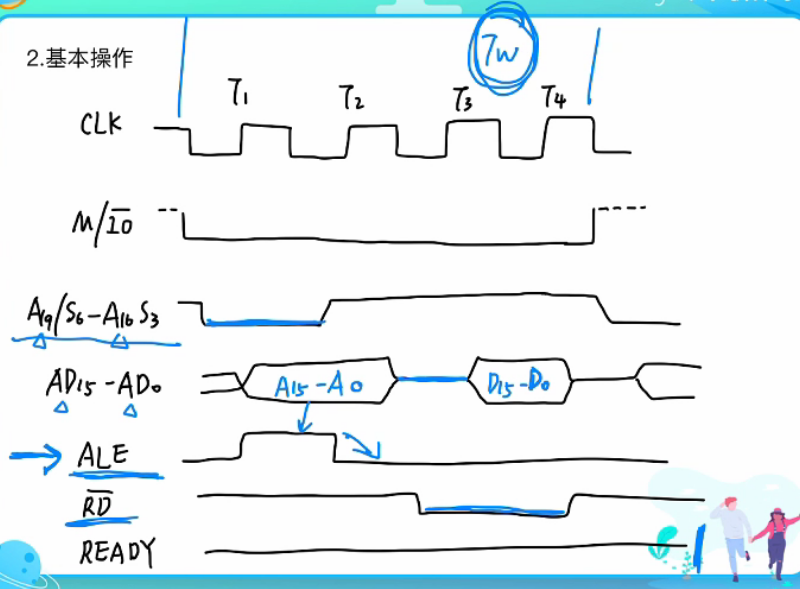 2.基本操作
Tw
T1 T2 T3 T4
CLK
M/I̅O̅
A19/S6-A16S3
AD15-AD0
A15-A0 D15-D0
ALE
R̅D̅
READY